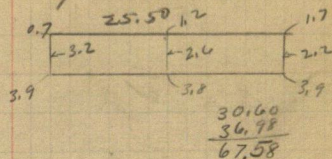 25.50
0.7 1.2 1.7
3.2 2.6 2.2
3.9 3.8 3.9
30.60
36.98
67.58